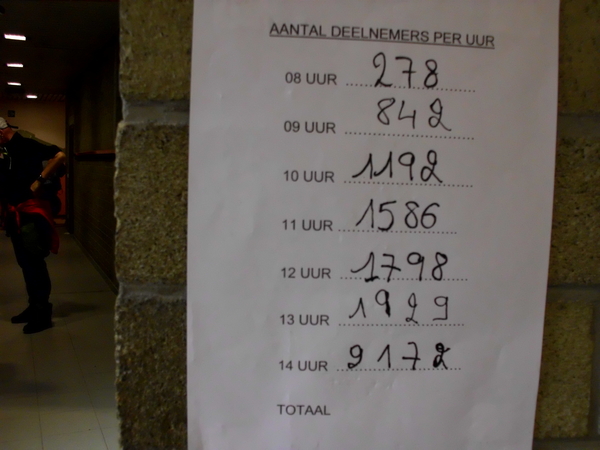 AANTAL DEELNEMERS PER UUR
08 UUR 278
09 UUR 842
10 UUR 1192
11 UUR 1586
12 UUR 1798
13 UUR 1929
14 UUR 9172
TOTAAL